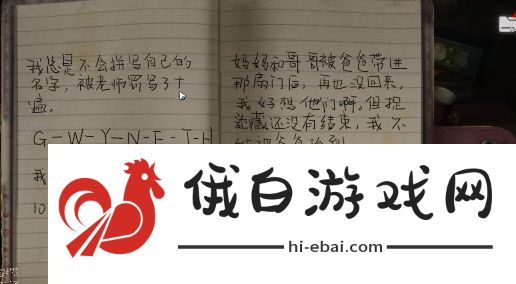 我总是不会拼写自己的
名字，被老师罚写了十
遍。
G-W-Y-N-E-T-H
我
10
妈妈和哥哥被爸爸带进
那扇门后，再也没回来，
我好想他们啊。但捉
迷藏还没有结束，我不
俄白游戏网
hi-ebai.com